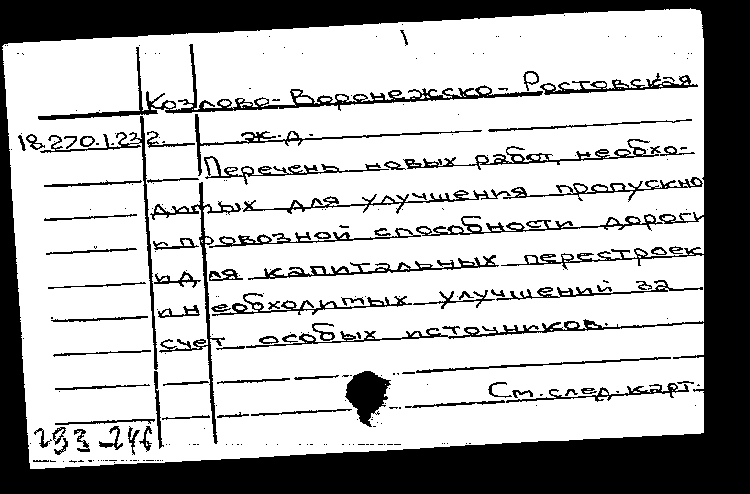 Козлово-Воронежско-Ростовская
18.270.1.232. ж.д.
Перечень новых работ, необхо-
димых для улучшения пропускно
и провозной способности дороги
и для капитальных перестроек
и необходимых улучшений за
счет особых источников.
См. след. карт.
233-246